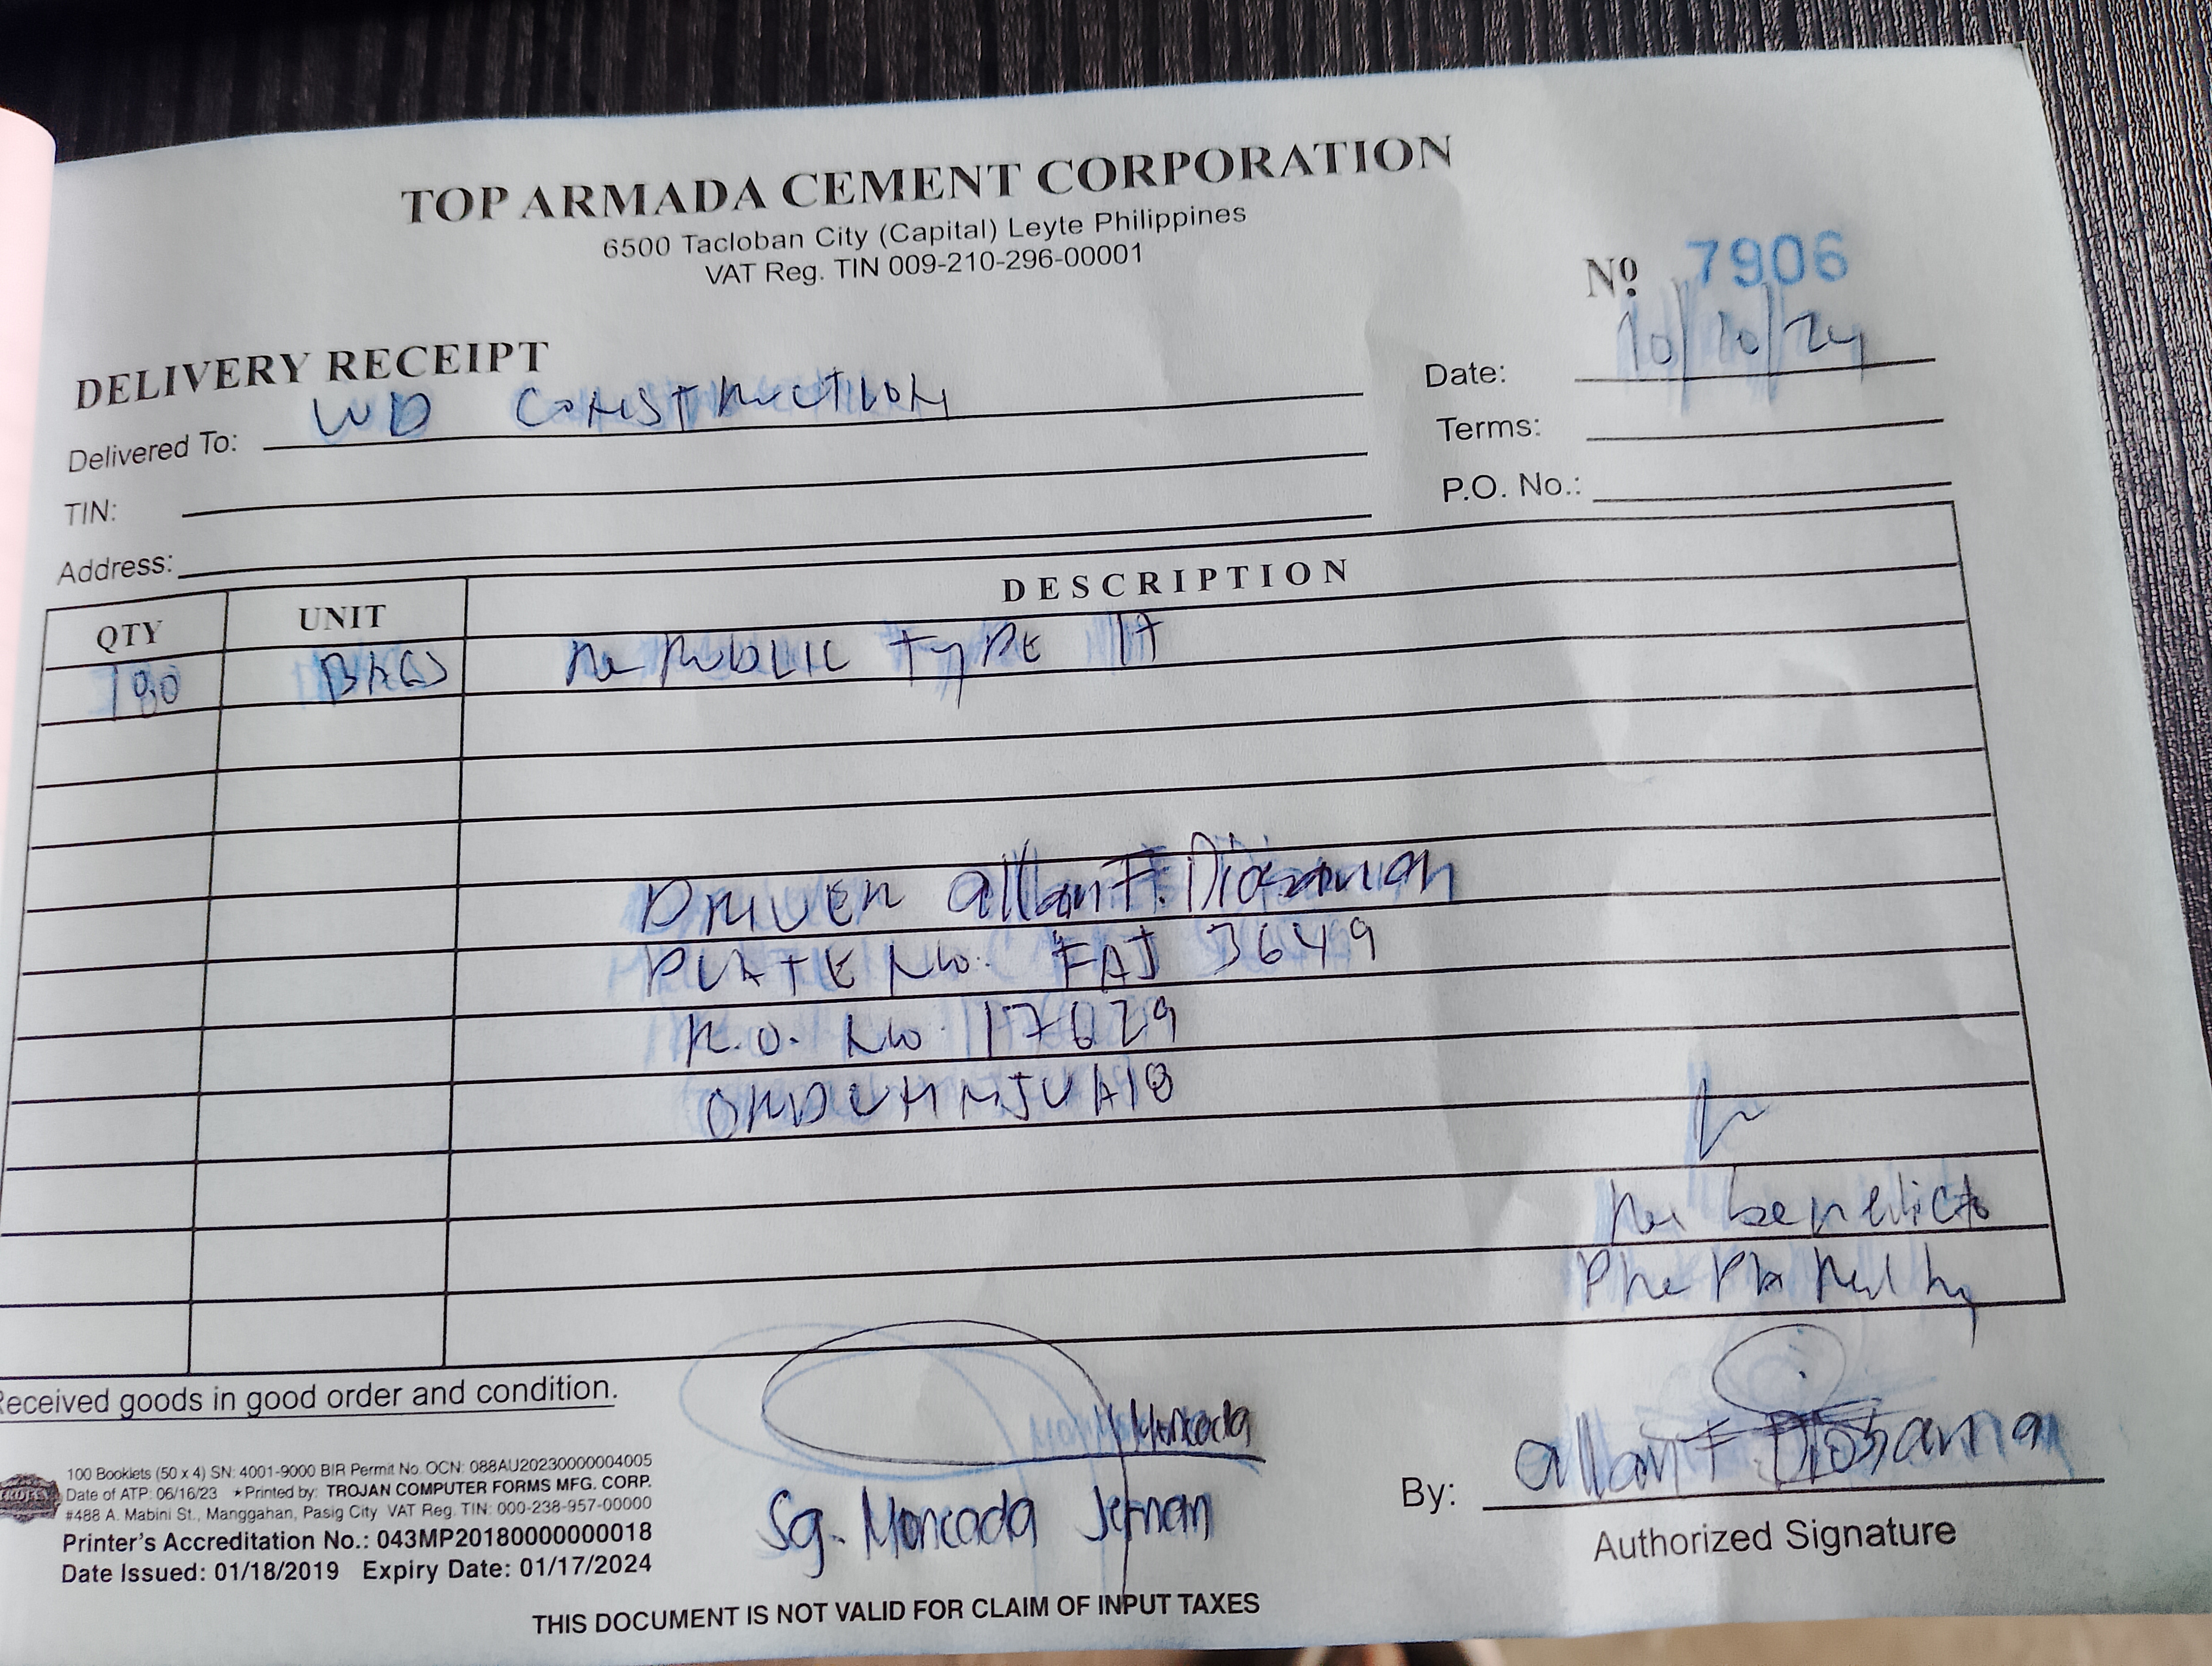 TOP ARMADA CEMENT CORPORATION
6500 Tacloban City (Capital) Leyte Philippines
VAT Reg. TIN 009-210-296-00001
Nº 7906
DELIVERY RECEIPT
Date: 10/10/24
Delivered To: WD CONSTRUCTION
Terms:
TIN:
P.O. No.:
Address:
QTY UNIT DESCRIPTION
BAGS REPUBLIC TYPE 1T
DRIVER allan F.
PLATE No. FAJ 3649
R.O. No 17829
benedicto
Received goods in good order and condition.
Moncada
Sg. Moncada
By: allan F
Authorized Signature
100 Booklets (50 x 4) SN: 4001-9000 BIR Permit No. OCN: 088AU20230000004005
Date of ATP: 06/16/23 ★Printed by: TROJAN COMPUTER FORMS MFG. CORP.
#488 A. Mabini St., Manggahan, Pasig City VAT Reg. TIN: 000-238-957-00000
Printer's Accreditation No.: 043MP20180000000018
Date Issued: 01/18/2019 Expiry Date: 01/17/2024
THIS DOCUMENT IS NOT VALID FOR CLAIM OF INPUT TAXES